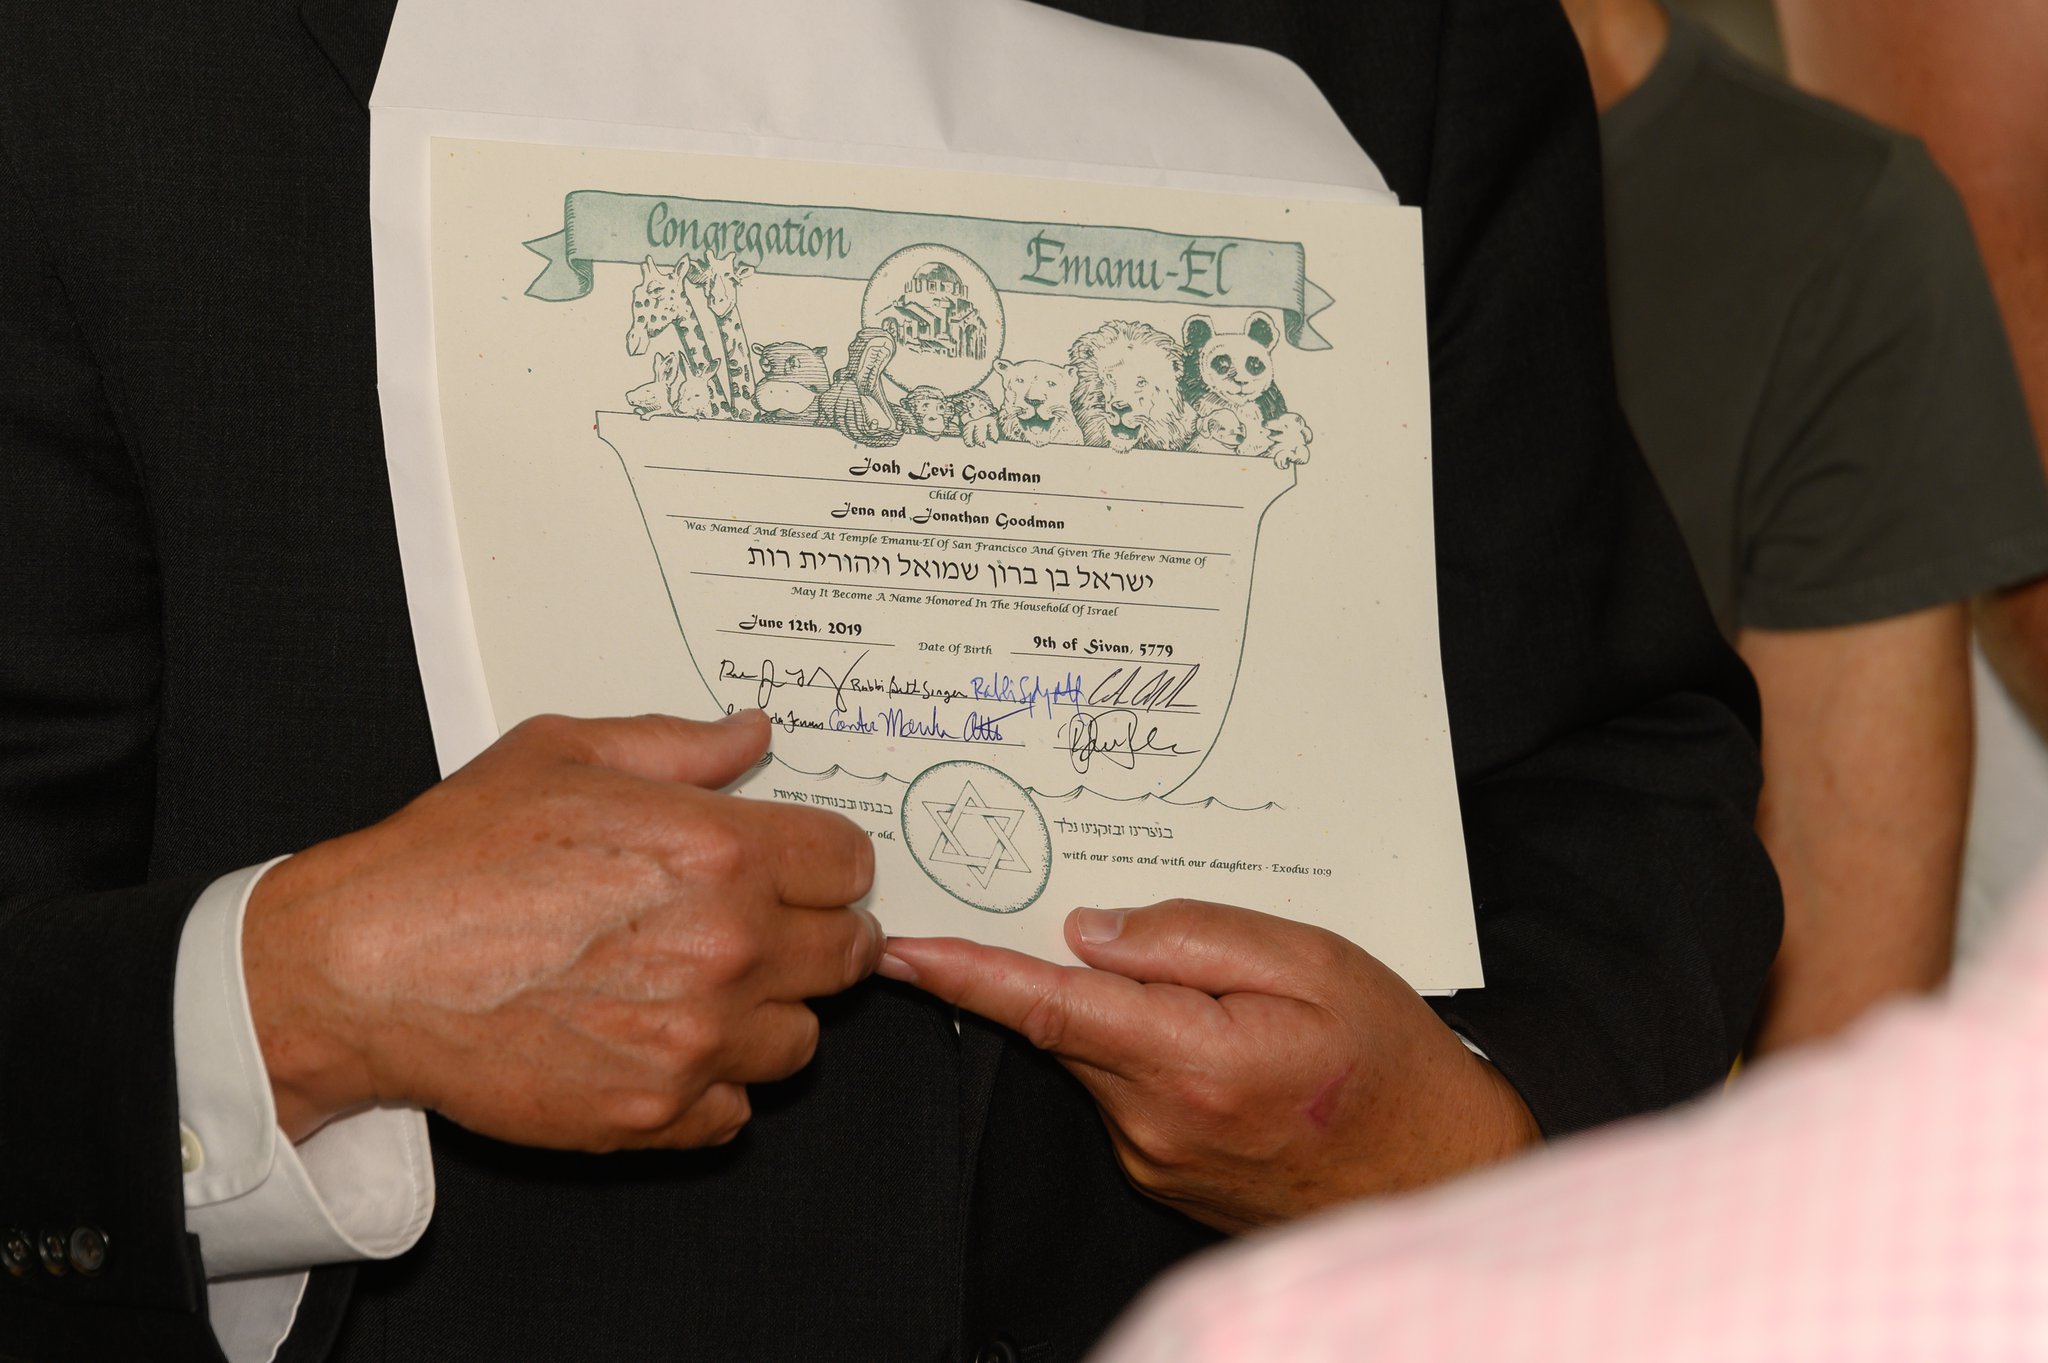 Congregation Emanu-El
Joah Levi Goodman
Child Of
Jena and Jonathan Goodman
Was Named And Blessed At Temple Emanu-El Of San Francisco And Given The Hebrew Name Of
ישראל בן ברוך שמואל ויהורית רות
May It Become A Name Honored In The Household Of Israel
June 12th, 2019 Date Of Birth 9th of Sivan, 5779
Rabbi Beth Singer Rabbi
Cantor Marsha Attie
בנערינו ובזקנינו נלך
בבנינו ובבנותינו
r old,
with our sons and with our daughters - Exodus 10:9